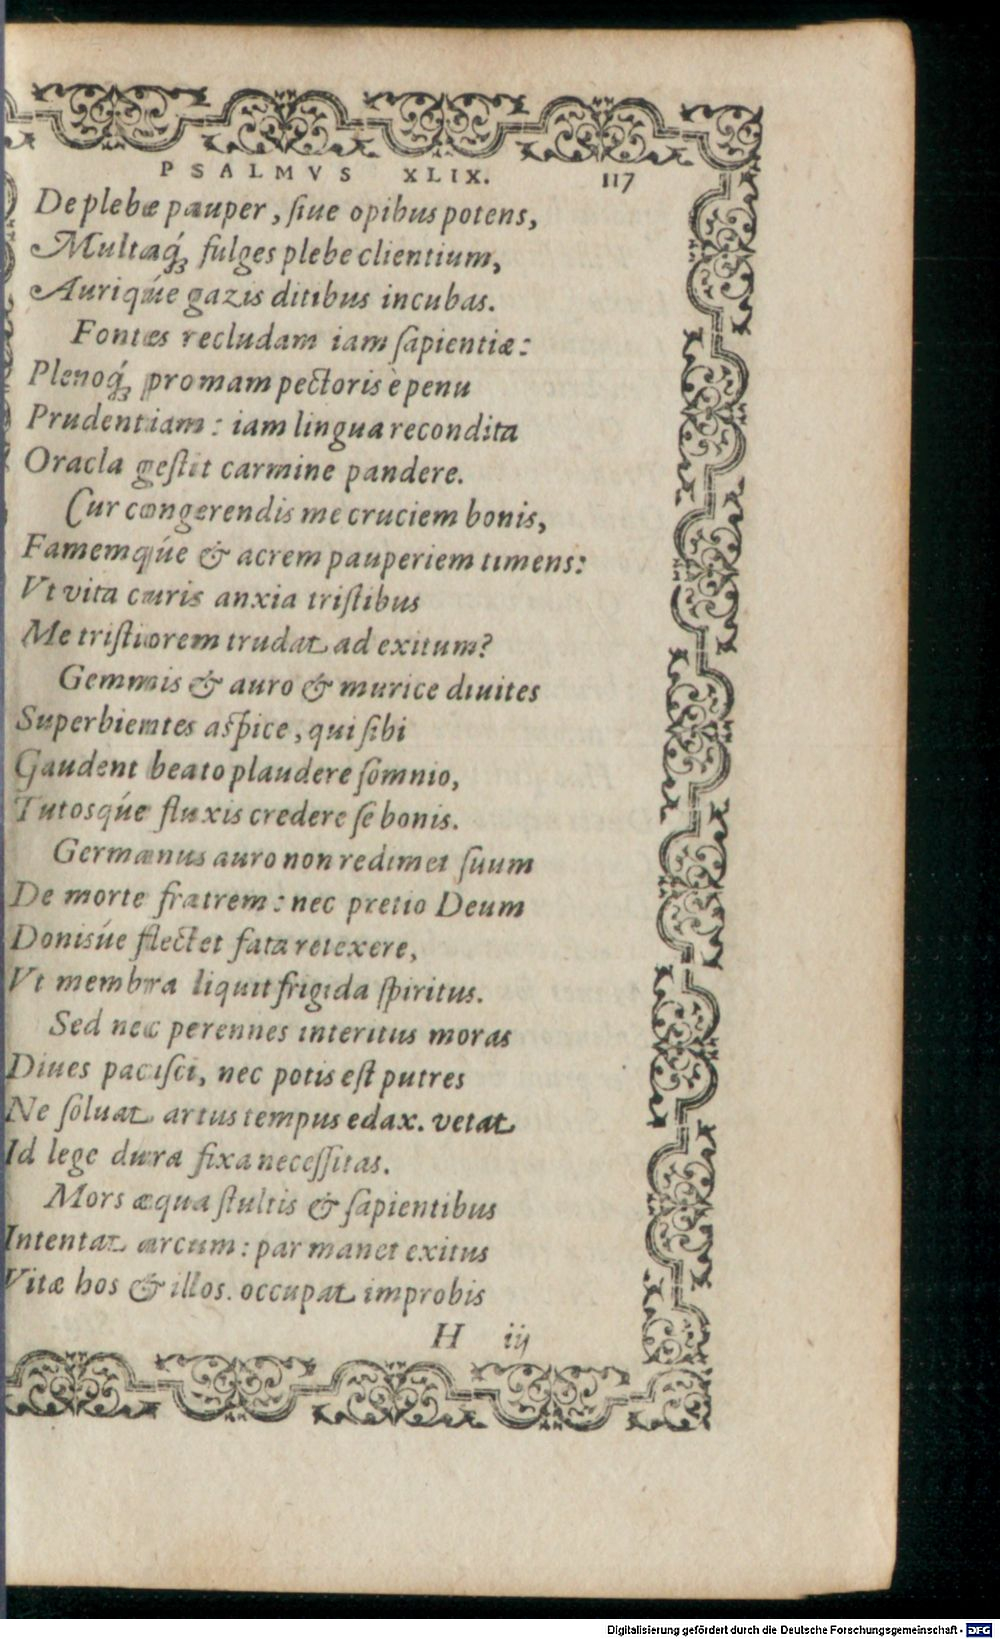 PSALMVS XLIX. 117
De plebe pauper, siue opibus potens,
Multaq́; fulges plebe clientium,
Auriqúe gazis ditibus incubas.
Fontes recludam iam sapientiæ:
Plenoq́; promam pectoris è penu
Prudentiam: iam lingua recondita
Oracla gestit carmine pandere.
Cur congerendis me cruciem bonis,
Famemqúe & acrem pauperiem timens:
Vt vita curis anxia tristibus
Me tristiorem trudat ad exitum?
Gemmis & auro & murice diuites
Superbientes aspice, qui sibi
Gaudent beato plaudere somnio,
Tutosqúe fluxis credere se bonis.
Germanus auro non redimet suum
De morte fratrem: nec pretio Deum
Donisúe flectet fata retexere,
Vt membra liquit frigida spiritus.
Sed nec perennes interitus moras
Diues pacisci, nec potis est putres
Ne soluat artus tempus edax. vetat
Id lege dura fixa necessitas.
Mors æqua stultis & sapientibus
Intentat arcum: par manet exitus
Vitæ hos & illos. occupat improbis
H iij
Digitalisierung gefördert durch die Deutsche Forschungsgemeinschaft - DFG